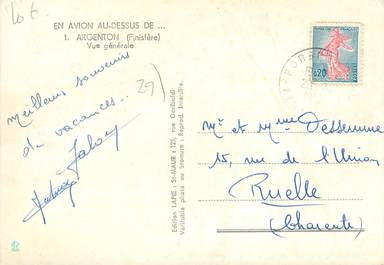 10 €
EN AVION AU-DESSUS DE ...
1. ARGENTON (Finistère)
Vue générale
29)
Meilleurs souvenirs
de vacances..
Edition LAPIE : St-MAUR : 125, rue Garibaldi
Véritable photo au bromure : Reprod. interdite.
0,20
Mr et Mme Dessemme
15, rue de l'Union
Ruelle
(Charente)